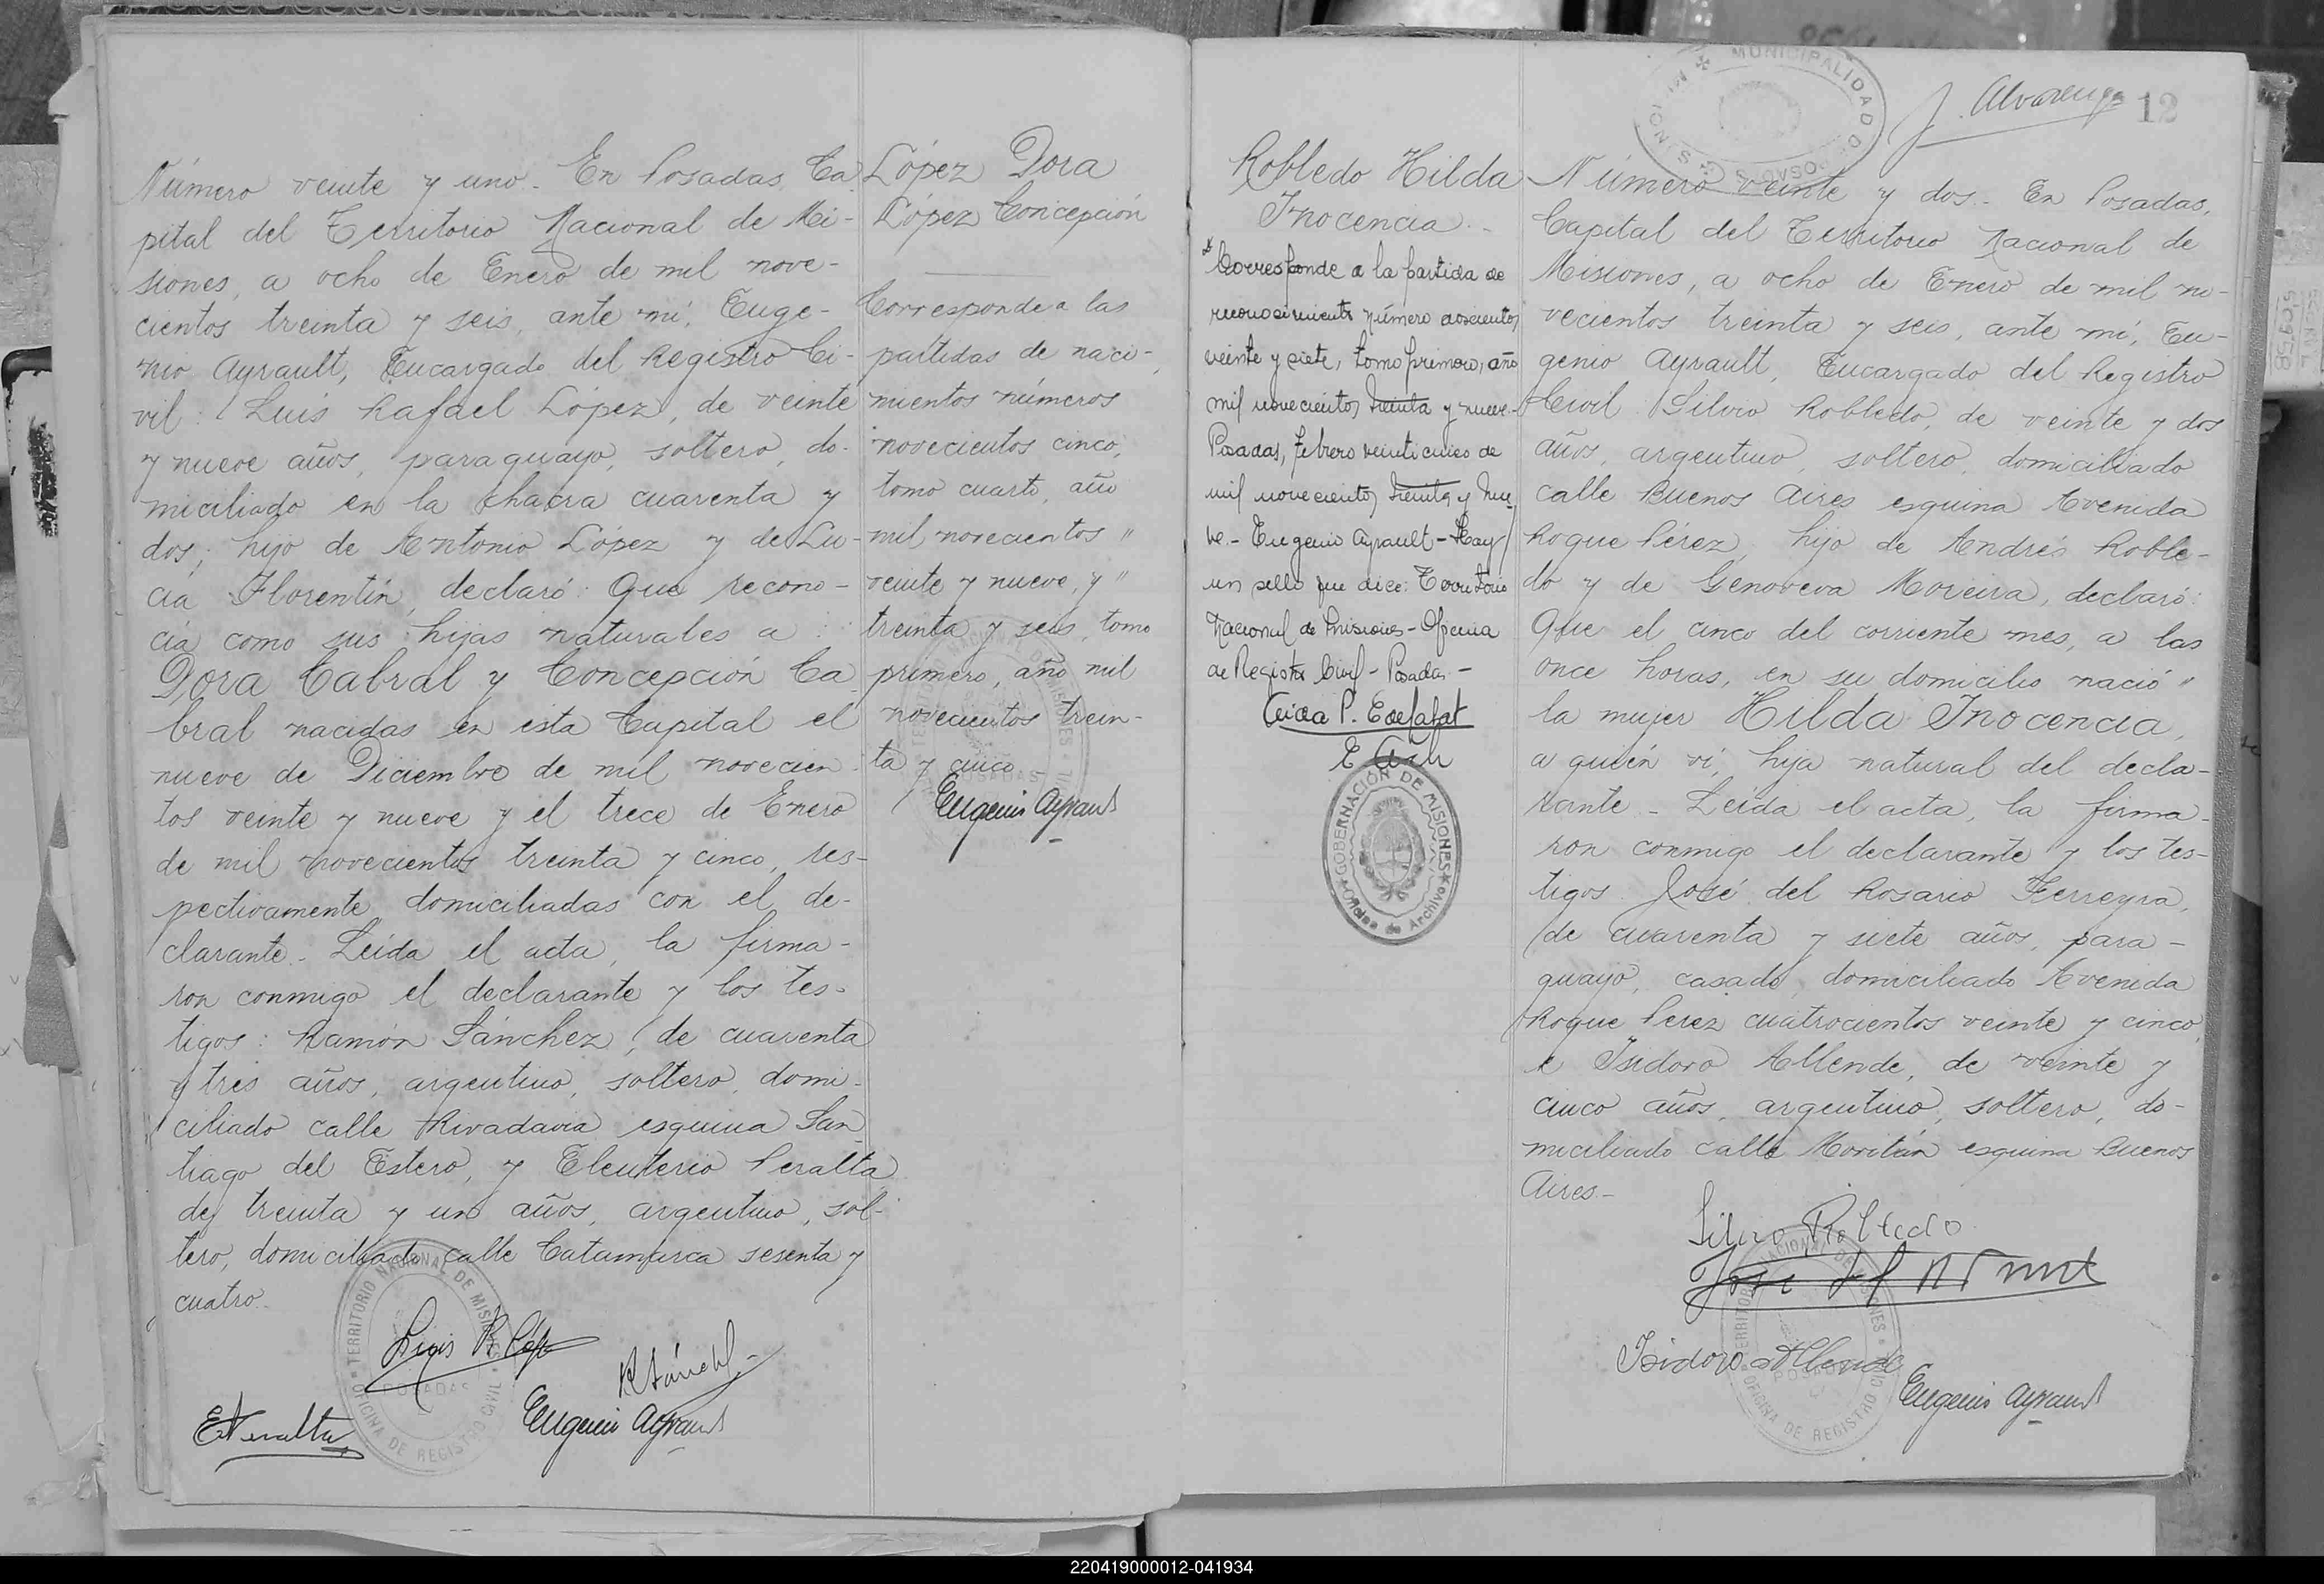 Número veinte y uno. En Posadas, Ca
pital del Territorio Nacional de Mi-
siones, a ocho de Enero de mil nove-
cientos treinta y seis, ante mí, Euge-
nio Ayrault, Encargado del Registro Ci-
vil: Luis Rafael López, de veinte
y nueve años, paraguayo, soltero, do-
miciliado en la chacra cuarenta y
dos; hijo de Antonio López y de Lu-
cía Florentín, declaró: Que recono-
cía como sus hijas naturales a:
Dora Cabral y Concepción Ca
bral nacidas en esta Capital el
nueve de Diciembre de mil novecien-
tos veinte y nueve y el trece de Enero
de mil novecientos treinta y cinco, res-
pectivamente, domiciliadas con el de-
clarante. Leída el acta, la firma-
ron conmigo el declarante y los tes-
tigos: Ramón Sánchez, de cuarenta
y tres años, argentino, soltero, domi-
ciliado calle Rivadavia esquina San
tiago del Estero, y Eleuterio Peralta,
de treinta y un años, argentino, sol-
tero, domiciliado calle Catamarca sesenta y
cuatro.
Luis R López
R Sánchez
E Peralta
Eugenio Ayrault
TERRITORIO NACIONAL DE MISIONES
POSADAS
OFICINA DE REGISTRO CIVIL
López Dora
López Concepción
Corresponde a las
partidas de naci-
mientos números
novecientos cinco,
tomo cuarto, año
mil novecientos "
veinte y nueve, y "
treinta y seis, tomo
primero, año mil
novecientos trein-
ta y cinco.
Eugenio Ayrault
Robledo Hilda
Inocencia.-
Corresponde a la partida de
reconocimiento número doscientos
veinte y siete, tomo primero, año
mil novecientos treinta y nueve.-
Posadas, febrero veinticinco de
mil novecientos treinta y nue
ve.- Eugenio Ayrault - Hay
un sello que dice: Territorio
Nacional de Misiones - Oficina
de Registro Civil - Posadas.-
GOBERNACIÓN DE MISIONES
Oficina de Archivo
MUNICIPALIDAD DE POSADAS
MISIONES
J. Alvarenga
12
Número veinte y dos.- En Posadas,
Capital del Territorio Nacional de
Misiones, a ocho de Enero de mil no-
vecientos treinta y seis, ante mí, Eu-
genio Ayrault, Encargado del Registro
Civil: Silvio Robledo, de veinte y dos
años, argentino, soltero, domiciliado
calle Buenos Aires esquina Avenida
Roque Pérez, hijo de Andrés Roble-
do y de Genoveva Moreira, declaró:
Que el cinco del corriente mes, a las
once horas, en su domicilio nació "
la mujer Hilda Inocencia,
a quién ví, hija natural del decla-
rante.- Leída el acta, la firma-
ron conmigo el declarante y los tes-
tigos José del Rosario Ferreyra,
de cuarenta y siete años, para-
guayo, casado, domiciliado Avenida
Roque Perez cuatrocientos veinte y cinco,
e Isidoro Allende, de veinte y
cinco años, argentino, soltero, do-
miciliado calle Moritán esquina Buenos
Aires.-
Silvio Robledo
Isidoro Allende
Eugenio Ayrault
TERRITORIO NACIONAL DE MISIONES
POSADAS
OFICINA DE REGISTRO CIVIL
220419000012-041934